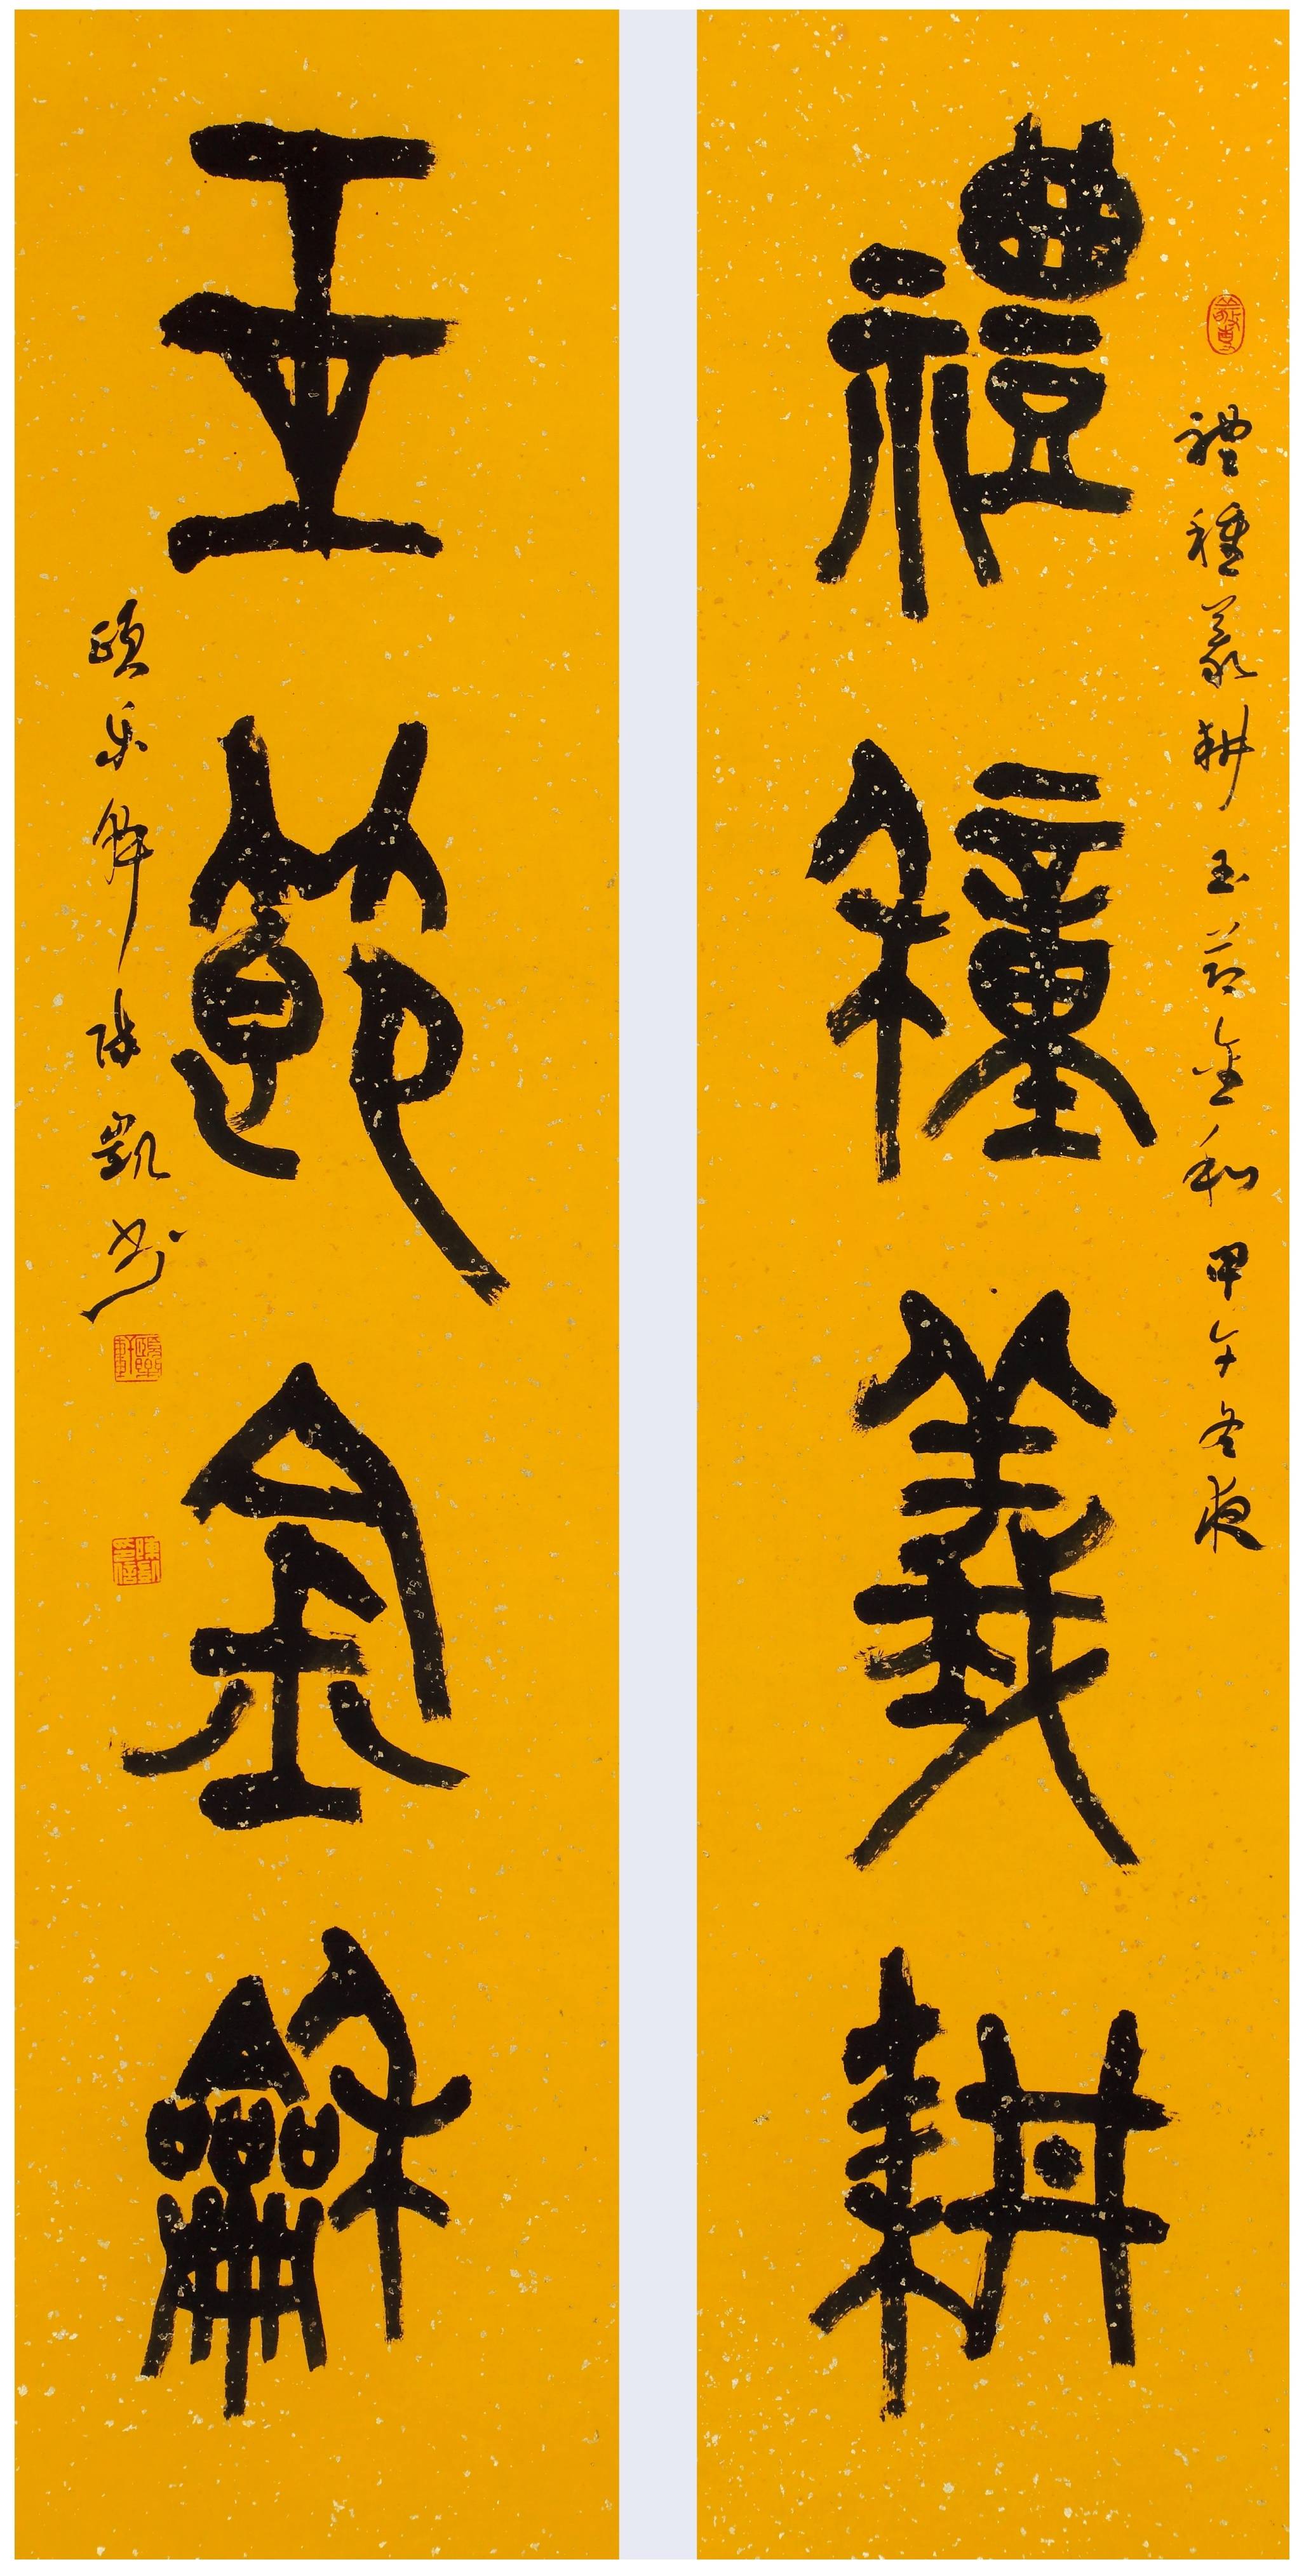 禮種義耕
禮種義耕玉節金和甲午冬夜
玉節金龢
頤樂軒陳凱書